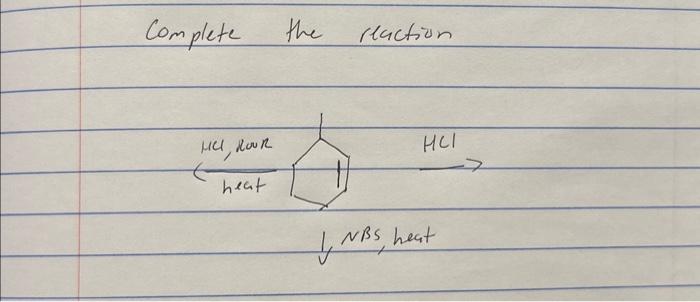 Complete the reaction
HCl, ROOR
heat
HCl
NBS, heat